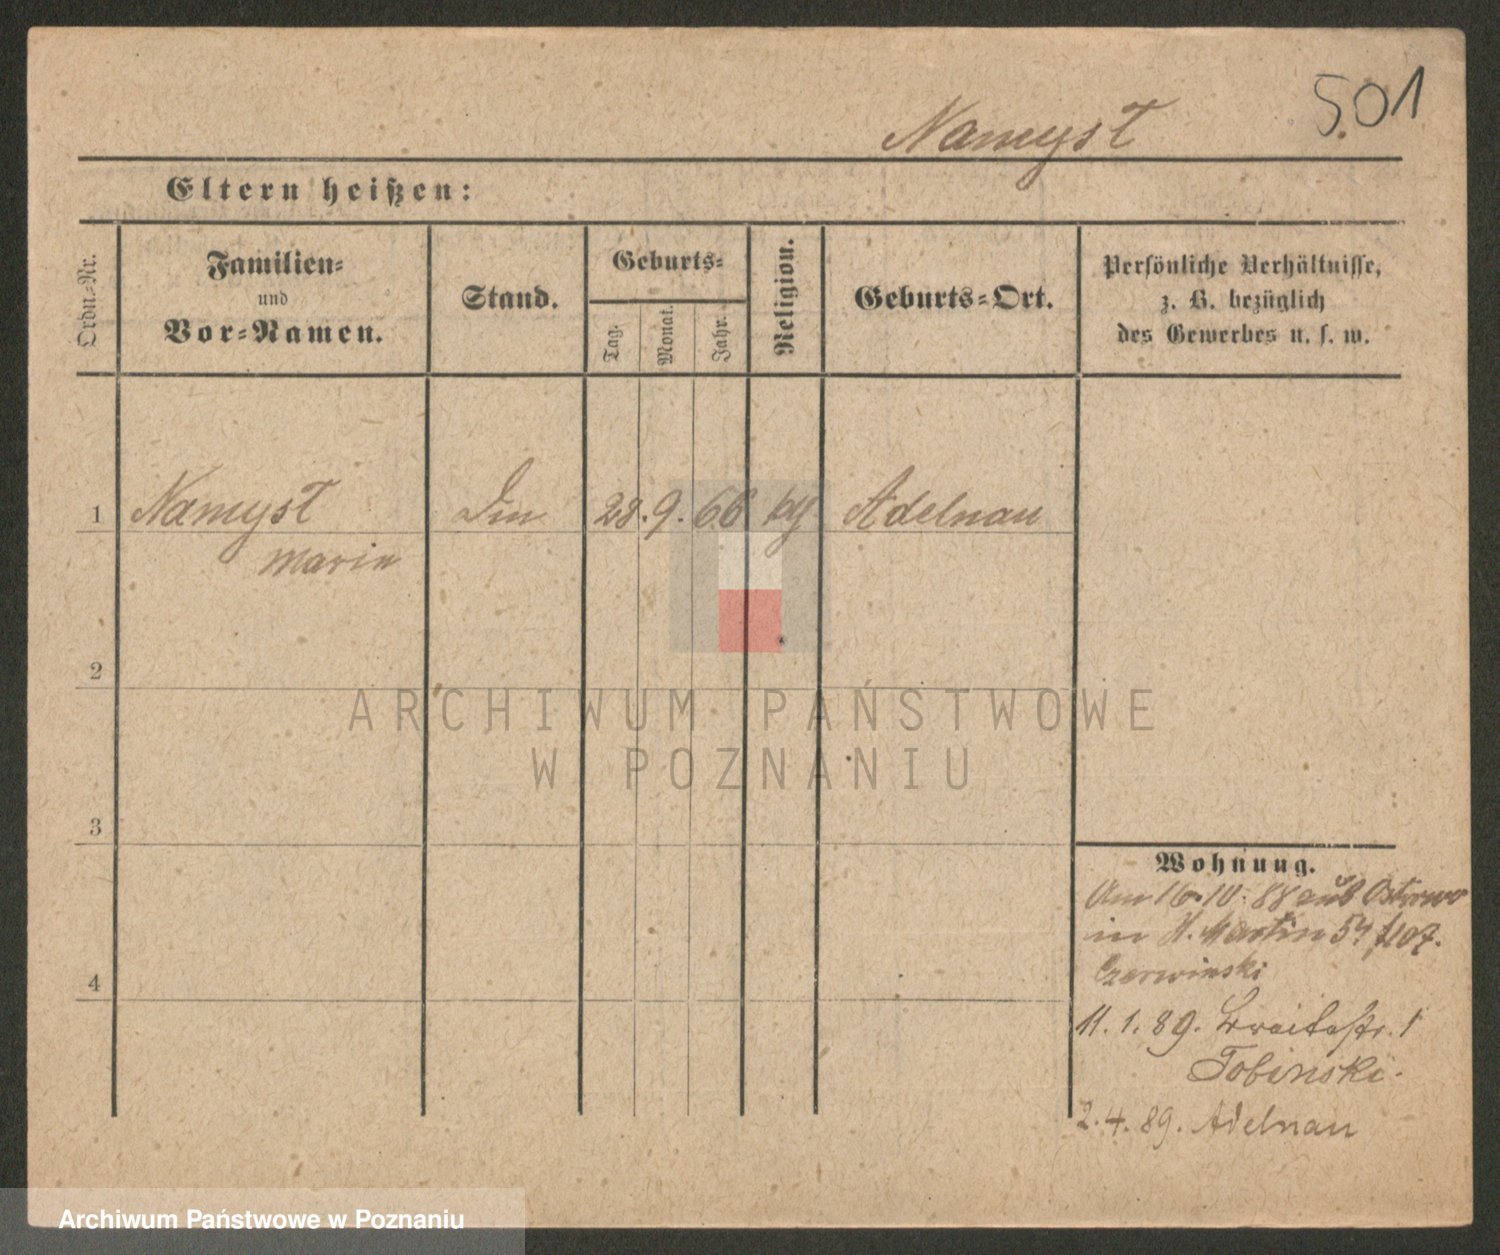 501
Namyst
Eltern heißen:
Ordn.-Nr.
Familien-
und
Vor-Namen.
Stand.
Geburts-
Tag.
Monat.
Jahr.
Religion.
Geburts-Ort.
Persönliche Verhältnisse,
z. B. bezüglich
des Gewerbes u. s. w.
1 Namyst 28. 9. 66 Adelnau
Marie
2
3
4
Wohnung.
Am 16.10.88 aus Ostrowo
in St. Martin 54
Czerwinski
11.1.89. Breitestr. 1
Tobinski.
2.4.89. Adelnau
ARCHIWUM PAŃSTWOWE
W POZNANIU
Archiwum Państwowe w Poznaniu